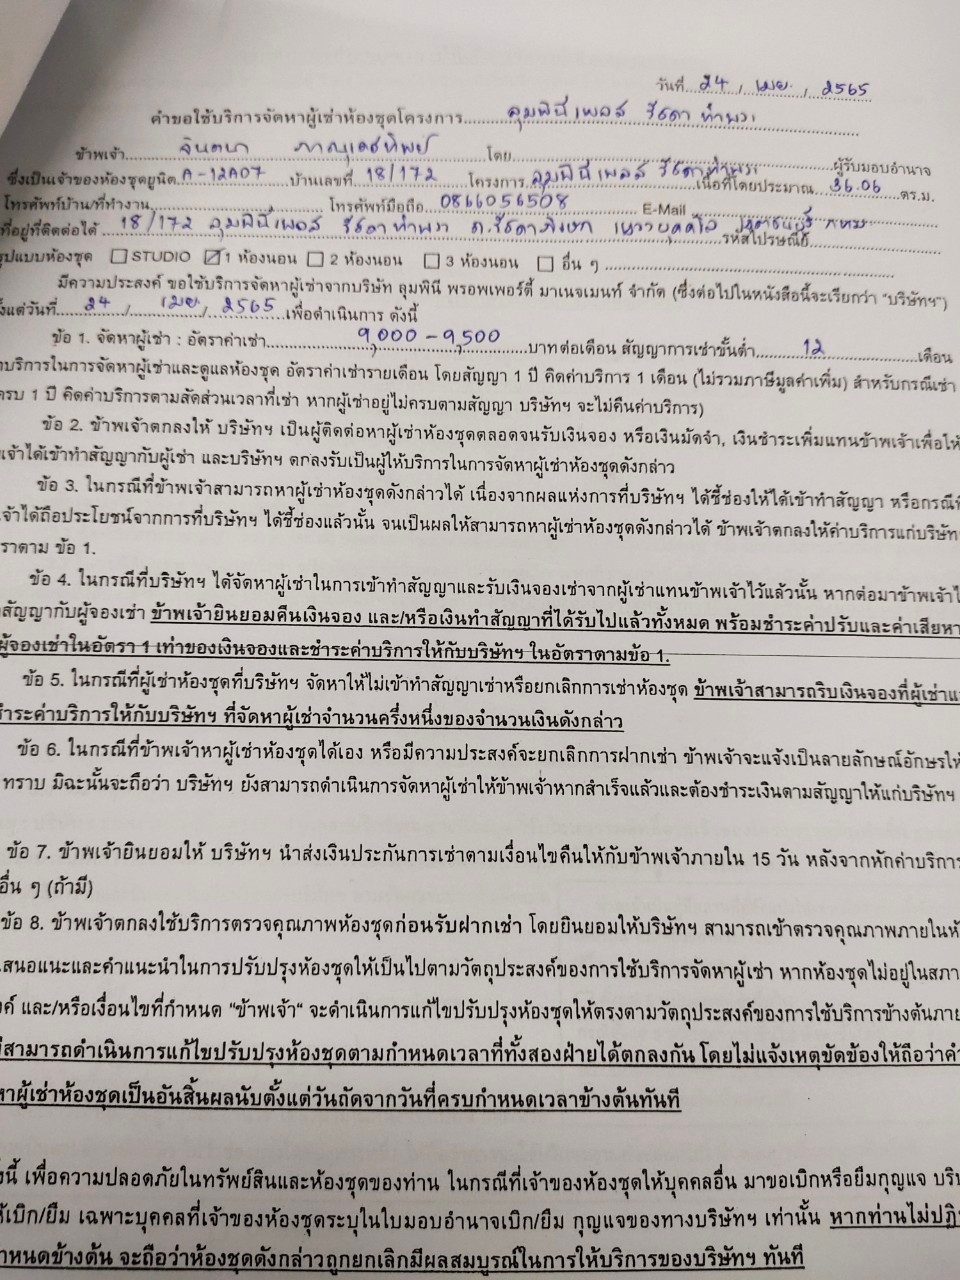 วันที่ 24 / เมย. / 2565
คำขอใช้บริการจัดหาผู้เช่าห้องชุดโครงการ ลุมพินี เพลส รัชดา ท่าพระ
ข้าพเจ้า จินตนา ภาณุเดชทิพย์ โดย ผู้รับมอบอำนาจ
ซึ่งเป็นเจ้าของห้องชุดยูนิต A-12A07 บ้านเลขที่ 18/172 โครงการ ลุมพินี เพลส รัชดาท่าพระ เนื้อที่โดยประมาณ 36.06 ตร.ม.
โทรศัพท์บ้าน/ที่ทำงาน โทรศัพท์มือถือ 0866056508 E-Mail
ที่อยู่ที่ติดต่อได้ 18/172 ลุมพินีเพลส รัชดา ท่าพระ ถ.รัชดาภิเษก แขวง ธนบุรี กทม รหัสไปรษณีย์
รูปแบบห้องชุด ☐ STUDIO ☑ 1 ห้องนอน ☐ 2 ห้องนอน ☐ 3 ห้องนอน ☐ อื่น ๆ
มีความประสงค์ ขอใช้บริการจัดหาผู้เช่าจากบริษัท ลุมพินี พรอพเพอร์ตี้ มาเนจเมนท์ จำกัด (ซึ่งต่อไปในหนังสือนี้จะเรียกว่า "บริษัทฯ")
ตั้งแต่วันที่ 24 / เมย. / 2565 เพื่อดำเนินการ ดังนี้
ข้อ 1. จัดหาผู้เช่า : อัตราค่าเช่า 9,000 - 9,500 บาทต่อเดือน สัญญาการเช่าขั้นต่ำ 12 เดือน
บริการในการจัดหาผู้เช่าและดูแลห้องชุด อัตราค่าเช่ารายเดือน โดยสัญญา 1 ปี คิดค่าบริการ 1 เดือน (ไม่รวมภาษีมูลค่าเพิ่ม) สำหรับกรณีเช่า
ครบ 1 ปี คิดค่าบริการตามสัดส่วนเวลาที่เช่า หากผู้เช่าอยู่ไม่ครบตามสัญญา บริษัทฯ จะไม่คืนค่าบริการ)
ข้อ 2. ข้าพเจ้าตกลงให้ บริษัทฯ เป็นผู้ติดต่อหาผู้เช่าห้องชุดตลอดจนรับเงินจอง หรือเงินมัดจำ, เงินชำระเพิ่มแทนข้าพเจ้าเพื่อให้
เจ้าได้เข้าทำสัญญากับผู้เช่า และบริษัทฯ ตกลงรับเป็นผู้ให้บริการในการจัดหาผู้เช่าห้องชุดดังกล่าว
ข้อ 3. ในกรณีที่ข้าพเจ้าสามารถหาผู้เช่าห้องชุดดังกล่าวได้ เนื่องจากผลแห่งการที่บริษัทฯ ได้ชี้ช่องให้ได้เข้าทำสัญญา หรือกรณี
เจ้าได้ถือประโยชน์จากการที่บริษัทฯ ได้ชี้ช่องแล้วนั้น จนเป็นผลให้สามารถหาผู้เช่าห้องชุดดังกล่าวได้ ข้าพเจ้าตกลงให้ค่าบริการแก่บริษัท
ราตาม ข้อ 1.
ข้อ 4. ในกรณีที่บริษัทฯ ได้จัดหาผู้เช่าในการเข้าทำสัญญาและรับเงินจองเช่าจากผู้เช่าแทนข้าพเจ้าไว้แล้วนั้น หากต่อมาข้าพเจ้า
สัญญากับผู้จองเช่า ข้าพเจ้ายินยอมคืนเงินจอง และ/หรือเงินทำสัญญาที่ได้รับไปแล้วทั้งหมด พร้อมชำระค่าปรับและค่าเสียหา
ผู้จองเช่าในอัตรา 1 เท่าของเงินจองและชำระค่าบริการให้กับบริษัทฯ ในอัตราตามข้อ 1.
ข้อ 5. ในกรณีที่ผู้เช่าห้องชุดที่บริษัทฯ จัดหาให้ไม่เข้าทำสัญญาเช่าหรือยกเลิกการเช่าห้องชุด ข้าพเจ้าสามารถริบเงินจองที่ผู้เช่า
ชำระค่าบริการให้กับบริษัทฯ ที่จัดหาผู้เช่าจำนวนครึ่งหนึ่งของจำนวนเงินดังกล่าว
ข้อ 6. ในกรณีที่ข้าพเจ้าหาผู้เช่าห้องชุดได้เอง หรือมีความประสงค์จะยกเลิกการฝากเช่า ข้าพเจ้าจะแจ้งเป็นลายลักษณ์อักษรให้
ทราบ มิฉะนั้นจะถือว่า บริษัทฯ ยังสามารถดำเนินการจัดหาผู้เช่าให้ข้าพเจ้าหากสำเร็จแล้วและต้องชำระเงินตามสัญญาให้แก่บริษัทฯ
ข้อ 7. ข้าพเจ้ายินยอมให้ บริษัทฯ นำส่งเงินประกันการเช่าตามเงื่อนไขคืนให้กับข้าพเจ้าภายใน 15 วัน หลังจากหักค่าบริการ
อื่น ๆ (ถ้ามี)
ข้อ 8. ข้าพเจ้าตกลงใช้บริการตรวจคุณภาพห้องชุดก่อนรับฝากเช่า โดยยินยอมให้บริษัทฯ สามารถเข้าตรวจคุณภาพภายใน
เสนอแนะและคำแนะนำในการปรับปรุงห้องชุดให้เป็นไปตามวัตถุประสงค์ของการใช้บริการจัดหาผู้เช่า หากห้องชุดไม่อยู่ในสภา
งค์ และ/หรือเงื่อนไขที่กำหนด "ข้าพเจ้า" จะดำเนินการแก้ไขปรับปรุงห้องชุดให้ตรงตามวัตถุประสงค์ของการใช้บริการข้างต้นภาย
สามารถดำเนินการแก้ไขปรับปรุงห้องชุดตามกำหนดเวลาที่ทั้งสองฝ่ายได้ตกลงกัน โดยไม่แจ้งเหตุขัดข้องให้ถือว่าคำ
หาผู้เช่าห้องชุดเป็นอันสิ้นผลนับตั้งแต่วันถัดจากวันที่ครบกำหนดเวลาข้างต้นทันที
งนี้ เพื่อความปลอดภัยในทรัพย์สินและห้องชุดของท่าน ในกรณีที่เจ้าของห้องชุดให้บุคคลอื่น มาขอเบิกหรือยืมกุญแจ บริษ
ห้เบิก/ยืม เฉพาะบุคคลที่เจ้าของห้องชุดระบุในใบมอบอำนาจเบิก/ยืม กุญแจของทางบริษัทฯ เท่านั้น หากท่านไม่ปฏิ
กำหนดข้างต้น จะถือว่าห้องชุดดังกล่าวถูกยกเลิกมีผลสมบูรณ์ในการให้บริการของบริษัทฯ ทันที